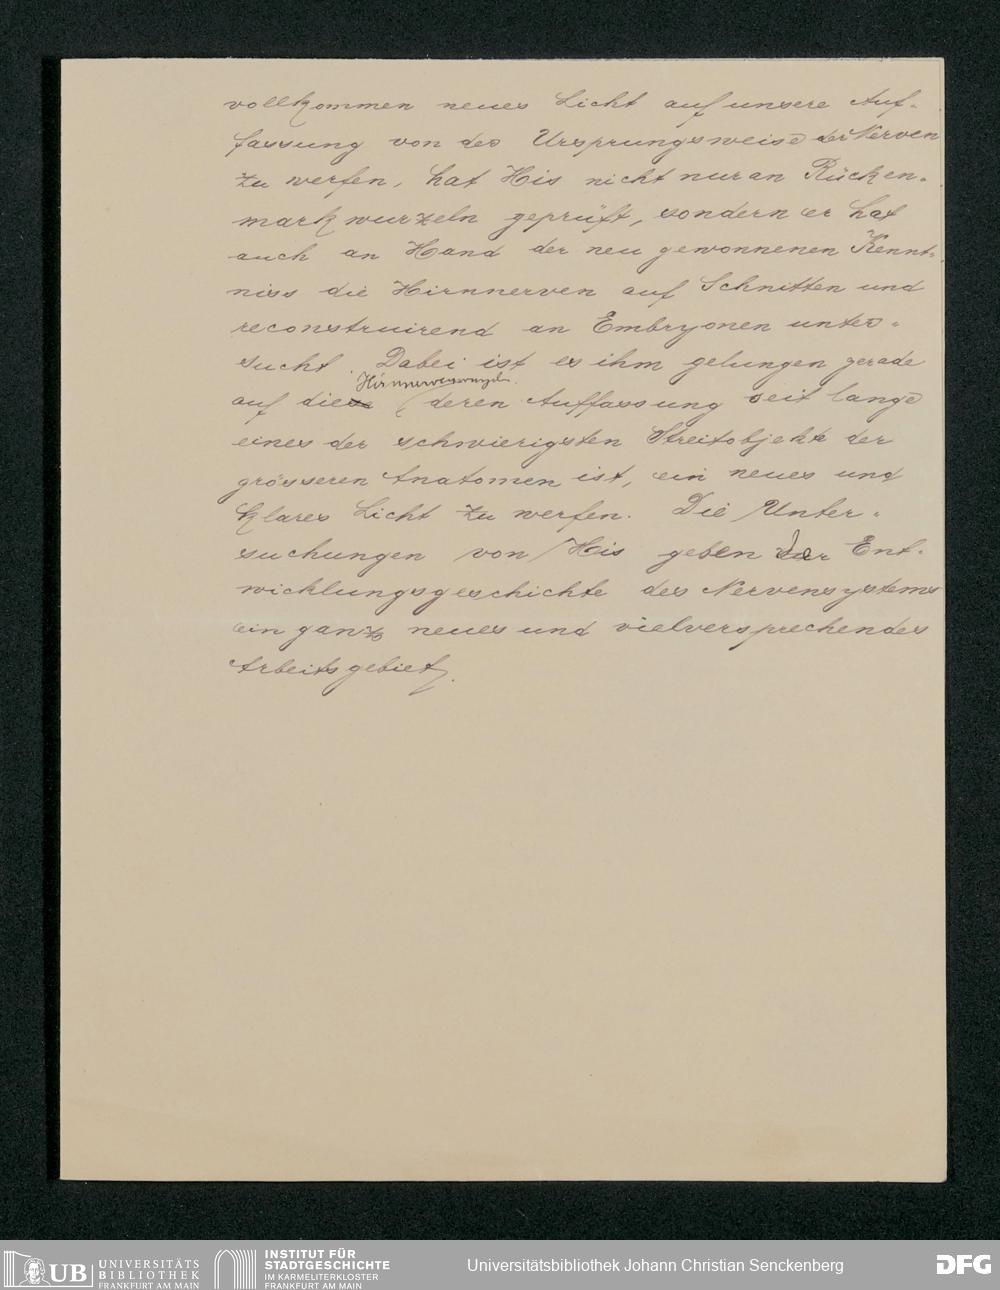 vollkommen neues Licht auf unsere Auf-
fassung von der Ursprungsweise der Nerven
zu werfen, hat His nicht nur an Rücken-
markwurzeln geprüft, sondern er hat
auch an Hand der neu gewonnenen Kennt-
niss die Hirnnerven auf Schnitten und
reconstruirend an Embryonen unter-
sucht. Dabei ist es ihm gelungen gerade
Hirnnerven
auf die deren Auffassung seit lange
eines der schwierigsten Streitobjekte der
grösseren Anatomen ist, ein neues und
klares Licht zu werfen. Die Unter-
suchungen von His geben der Ent-
wicklungsgeschichte des Nervensystems
ein ganz neues und vielversprechendes
Arbeitsgebiet.
UB UNIVERSITÄTS
BIBLIOTHEK
FRANKFURT AM MAIN
INSTITUT FÜR
STADTGESCHICHTE
IM KARMELITERKLOSTER
FRANKFURT AM MAIN
Universitätsbibliothek Johann Christian Senckenberg
DFG